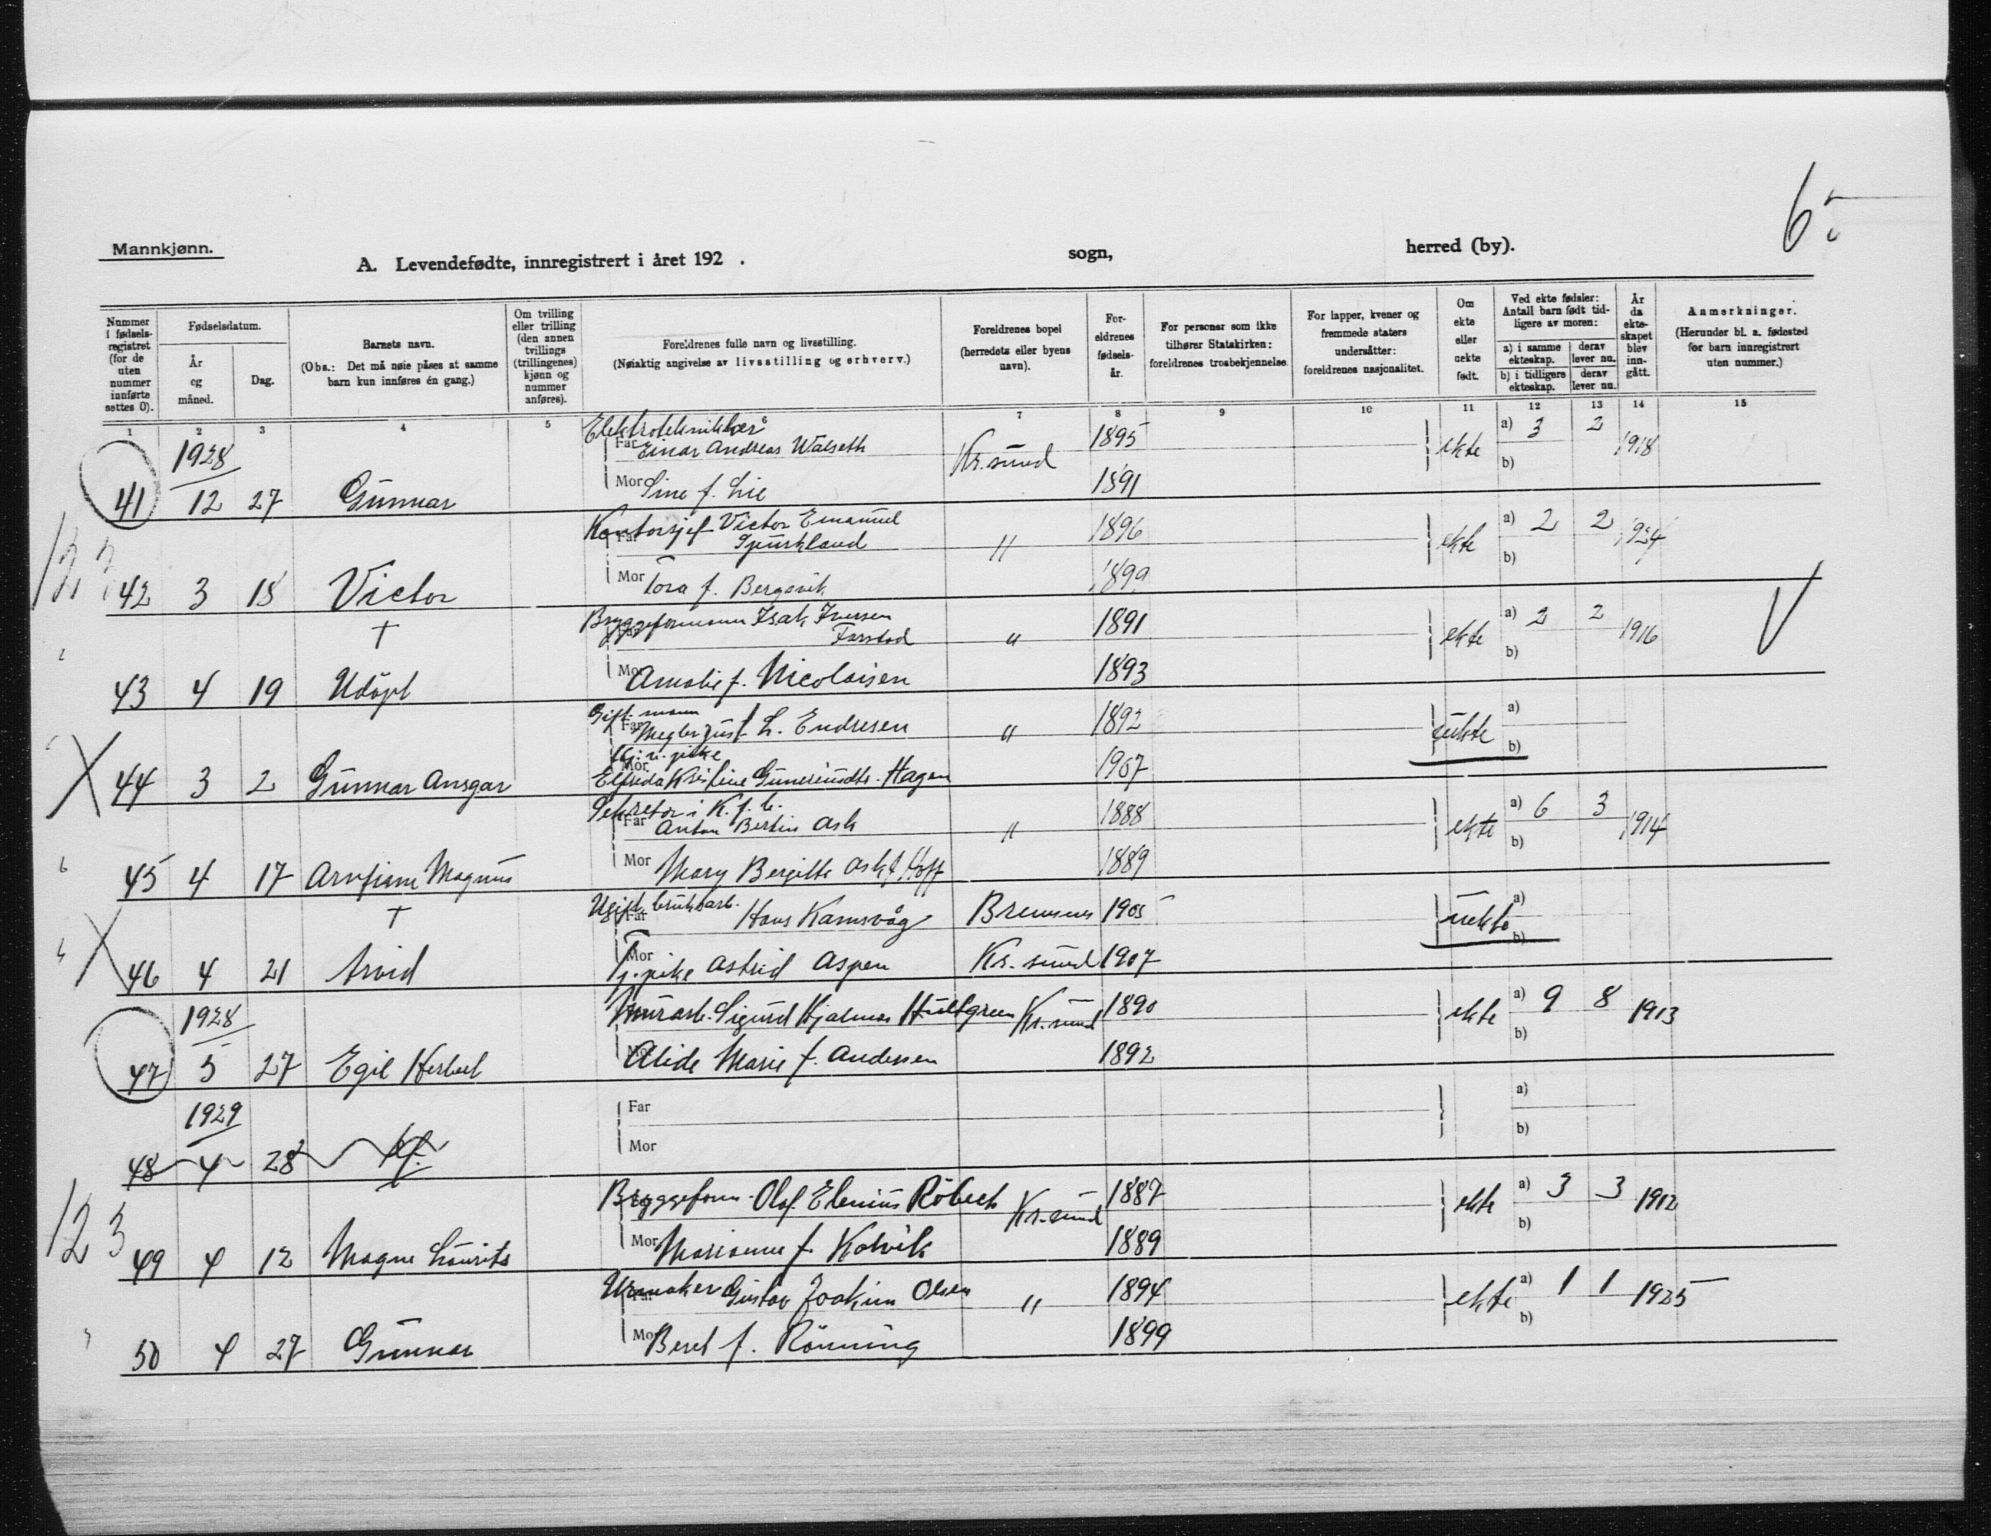 65
Mannkjønn.
A. Levendefødte, innregistrert i året 192 . sogn, herred (by).
Nummer i fødselsregistret (for de uten nummer innførte settes 0).
Fødselsdatum.
År og måned.
Dag.
Barnets navn.
(Obs.: Det må nøie påses at samme barn kun innføres én gang.)
Om tvilling eller trilling (den annen tvillings (trillingenes) kjønn og nummer anføres).
Foreldrenes fulle navn og livsstilling.
(Nøiaktig angivelse av livsstilling og erhverv.)
Foreldrenes bopel (herredets eller byens navn).
Foreldrenes fødselsår.
For personer som ikke tilhører Statskirken: foreldrenes trosbekjennelse.
For lapper, kvener og fremmede staters undersåtter: foreldrenes nasjonalitet.
Om ekte eller uekte født.
Ved ekte fødsler: Antall barn født tidligere av moren:
a) i samme ekteskap. derav lever nu.
b) i tidligere ekteskap. derav lever nu.
År da ekteskapet blev inngått.
Anmerkninger.
(Herunder bl. a. fødested for barn innregistrert uten nummer.)
1 2 3 4 5 7 8 9 10 11 12 13 14 15
Elektrotekniker
1928 Far Einar Andreas Walseth Kr.sund 1895 ekte a) 3 2 1918
b)
41 12 27 Gunnar Mor Sine f. Lie 1891
Kontorsjef Victor Emanuel 1896 a) 2 2 1924
Far Spurkland " ekte b)
123
42 3 18 Victor Mor Tora f. Bergsvik 1899
Bryggeformann Isak Iversen 1891 a) 2 2 1916
† Farstad " ekte b)
43 4 19 Udøpt Mor Amalie f. Nicolaisen 1893
Gift mann
Far Megler Just L. Endresen " 1892 uekte a)
b)
pike
44 3 2 Gunnar Ansgar Mor Elfrida Kristine Hagen 1907
Sekretær i K.
Far Anton Bertin Ask " 1888 ekte a) 6 3 1914
b)
45 4 17 Arnfinn Magnus Mor Mary Bergitte Ask f. Hoff 1889
Ugift bruksarb.
† Far Hans Ramsvåg Bremsnes 1905 uekte a)
b)
46 4 21 Arvid Mor pike Astrid Aspen Kr.sund 1907
1928 Murarb. Sigurd Hjalmar Hultgreen Kr.sund 1890 ekte a) 9 8 1913
b)
47 5 27 Egil Herbert Mor Alide Marie f. Andersen 1892
1929 Far a)
48 4 28 Mor b)
Bryggeform. Olaf Elenius Röbech Kr.sund 1887 ekte a) 3 3 1912
b)
123
49 4 12 Magne Laurits Mor Marianne f. Kolvik 1889
Urmaker Gustav Joakim Olsen " 1894 ekte a) 1 1 1925
b)
50 4 27 Gunnar Mor Beret f. Rönning 1899